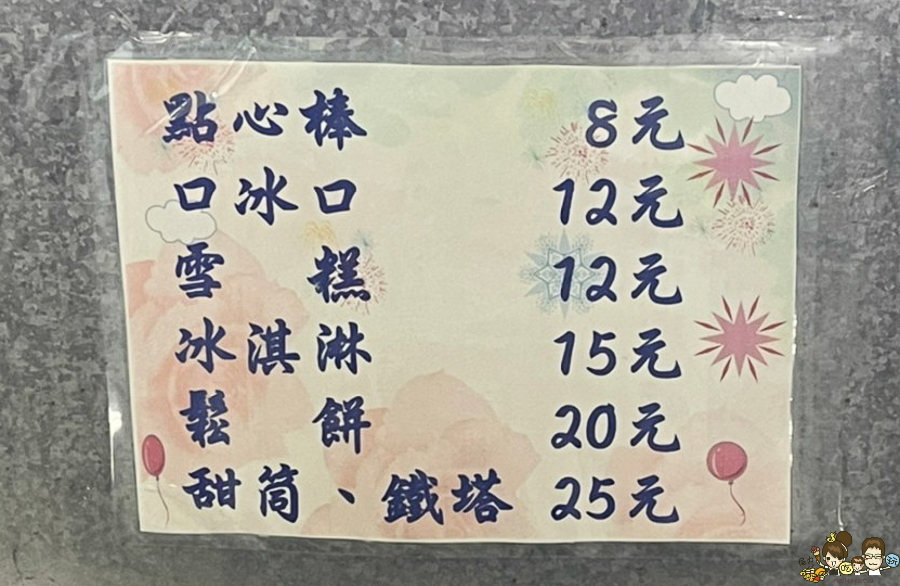 點心棒 8元
口冰口 12元
雪糕 12元
冰淇淋 15元
鬆餅 20元
甜筒、鐵塔 25元